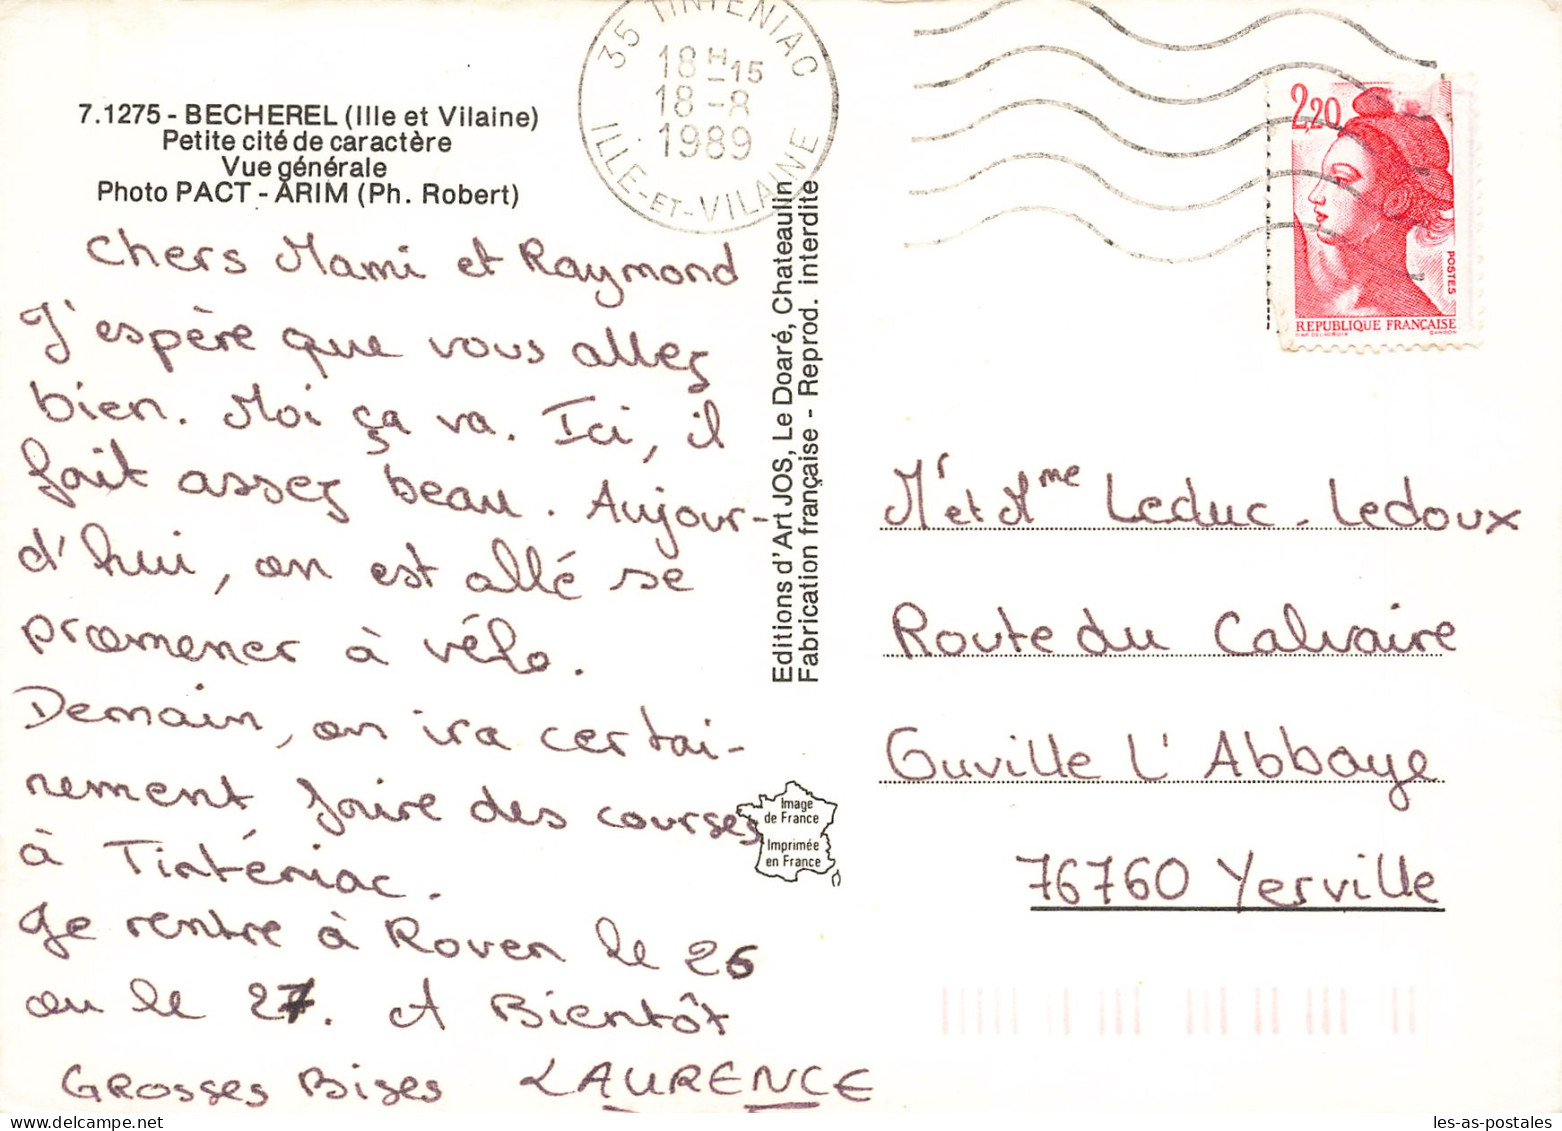 7.1275 - BECHEREL (Ille et Vilaine)
Petite cité de caractère
Vue générale
Photo PACT - ARIM (Ph. Robert)
35 TINTENIAC
18H15
18-8
1989
ILLE-ET-VILAINE
2,20
POSTES
REPUBLIQUE FRANÇAISE
D'AP. DELACROIX GANDON
Chers Mami et Raymond
J'espère que vous allez
bien. Moi ça va. Ici, il
fait assez beau. Aujour-
d'hui, on est allé se
promener à vélo.
Demain, on ira certai-
nement faire des courses
à Tinténiac.
Je rentre à Rouen le 26
ou le 27. A Bientôt
GROSSES BISES LAURENCE
Editions d'Art JOS, Le Doaré, Chateaulin
Fabrication française - Reprod. interdite
Image
de France
Imprimée
en France
Mr et Mme Leduc - Ledoux
Route du Calvaire
Guville L'Abbaye
76760 Yerville
les-as-postales